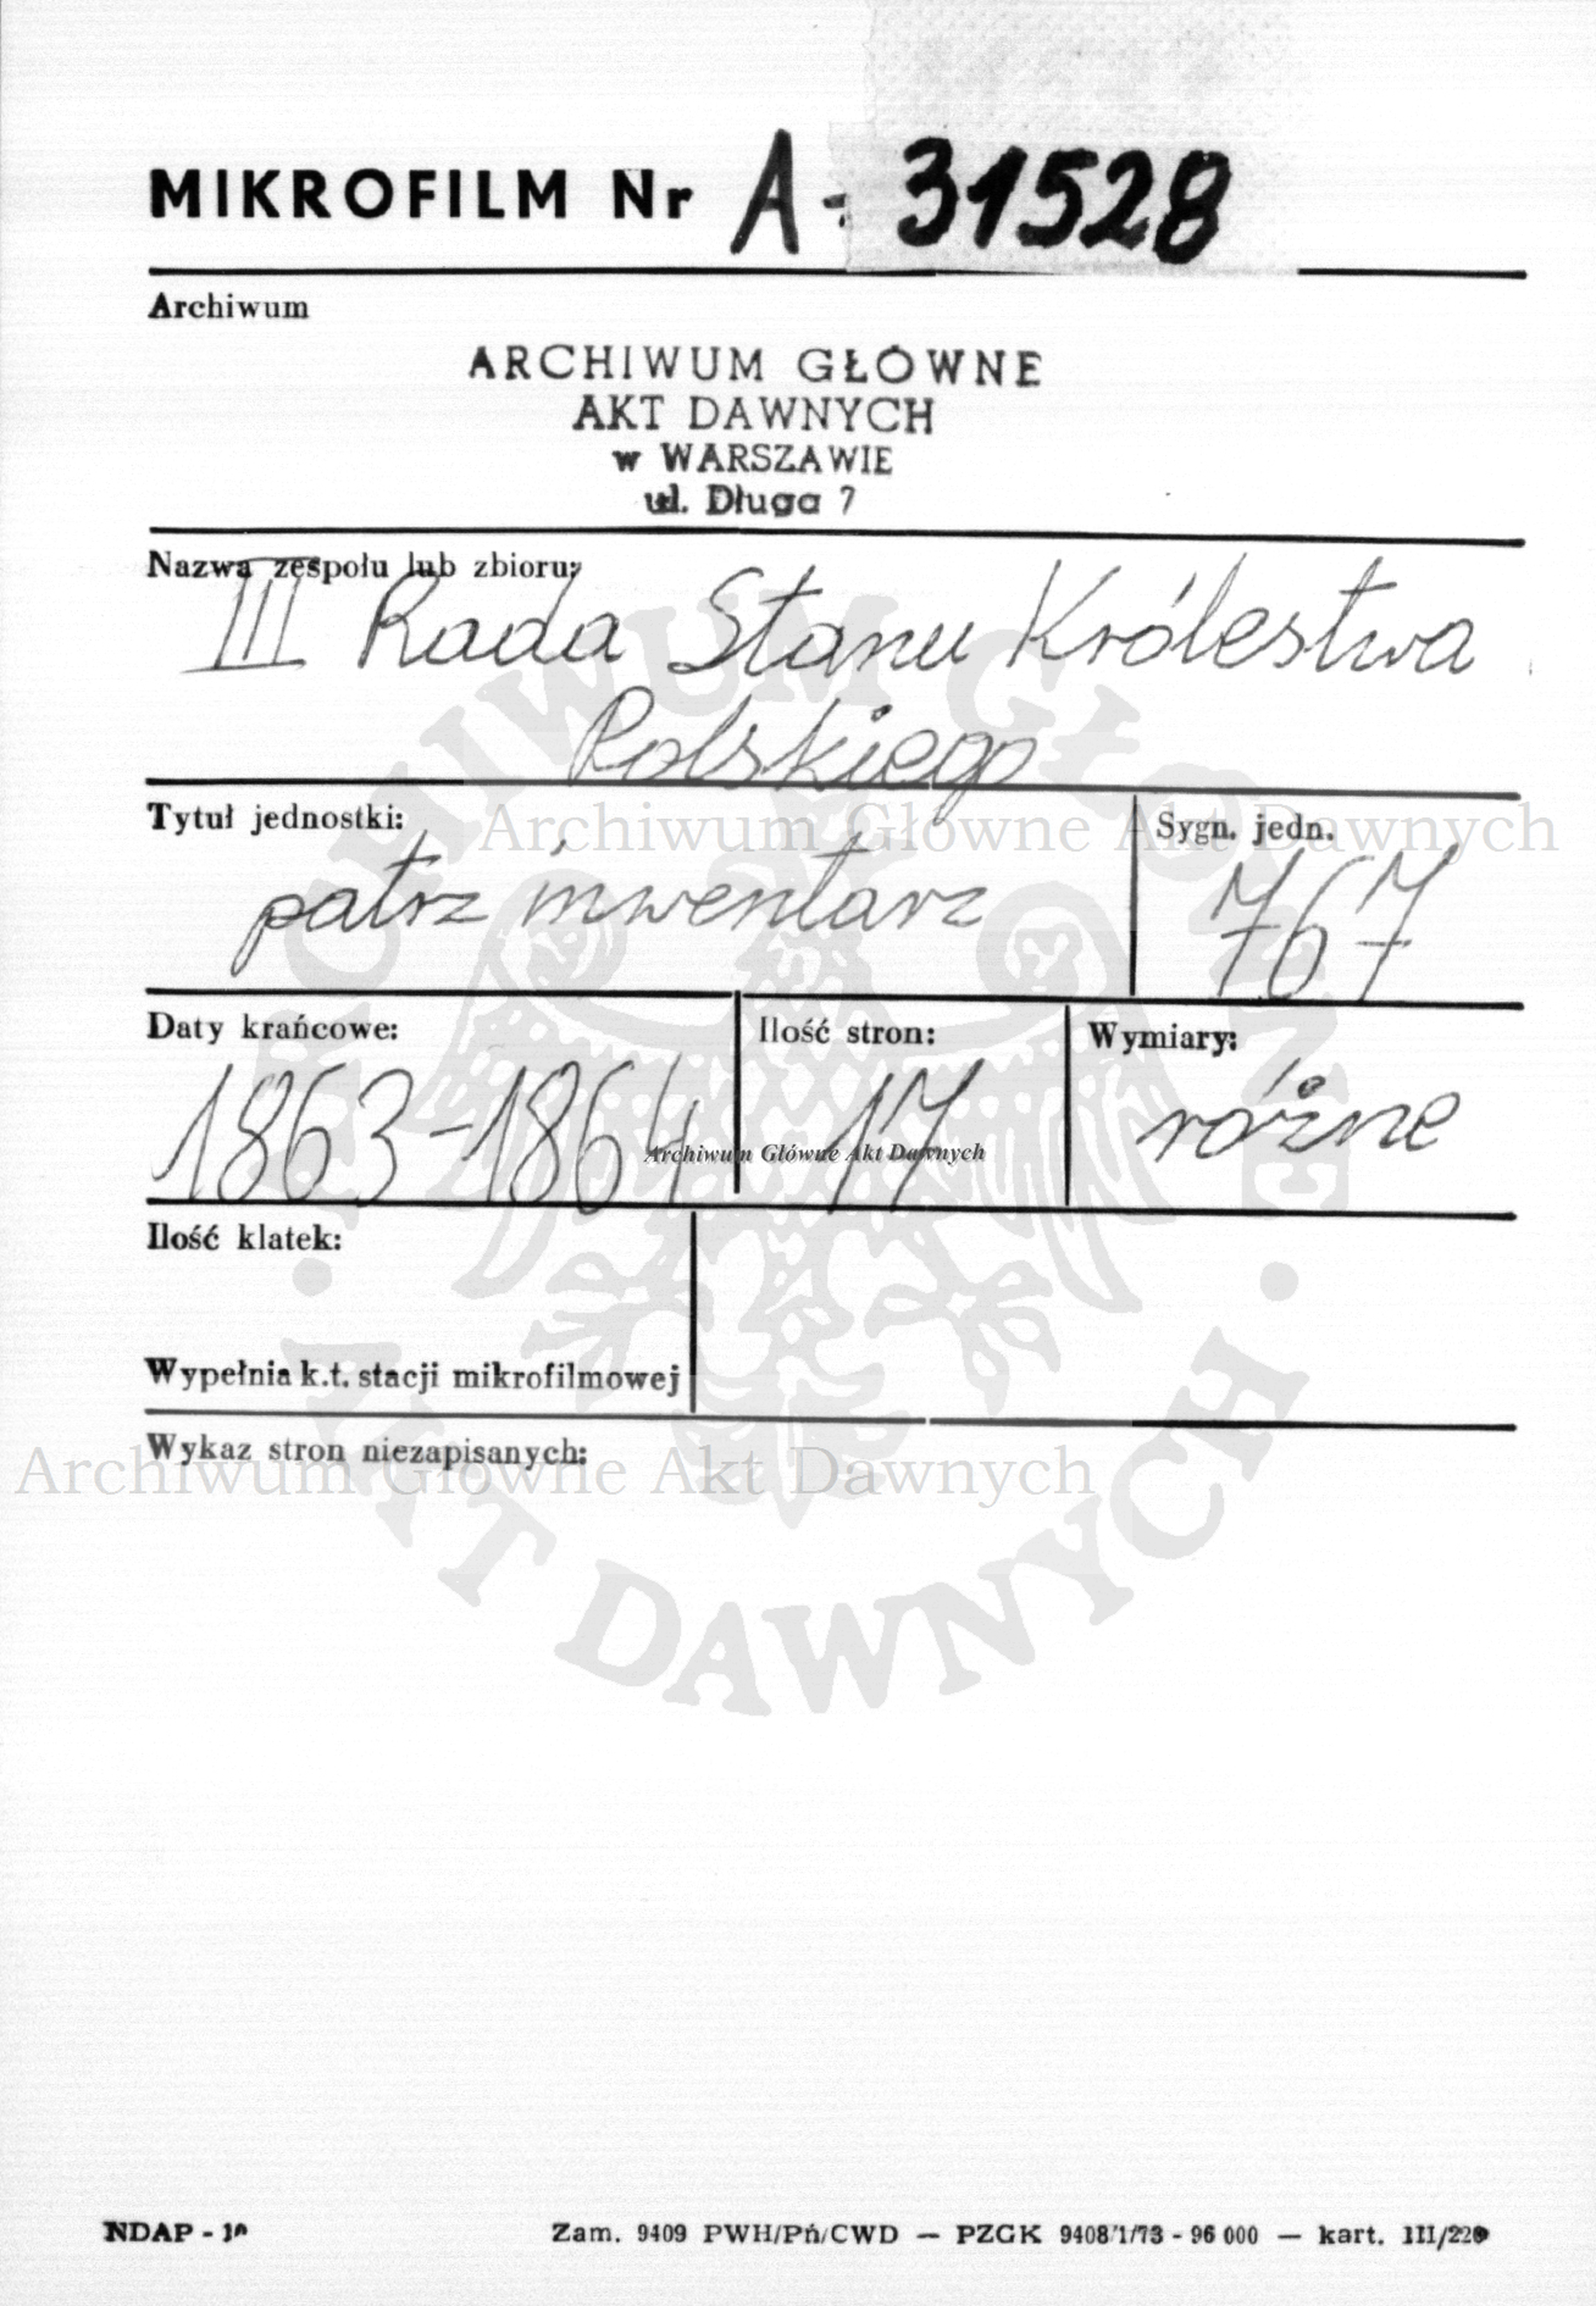 MIKROFILM Nr A - 31528
Archiwum
ARCHIWUM GŁÓWNE
AKT DAWNYCH
w WARSZAWIE
ul. Długa 7
Nazwa zespołu lub zbioru:
III Rada Stanu Królestwa
Polskiego
Tytuł jednostki:
Sygn. jedn.
Archiwum Główne Akt Dawnych
patrz inwentarz
767
Daty krańcowe:
Ilość stron:
Wymiary:
1863-1864
17
różne
Archiwum Główne Akt Dawnych
Ilość klatek:
Wypełnia k.t. stacji mikrofilmowej
Wykaz stron niezapisanych:
Archiwum Główne Akt Dawnych
ARCHIWUM GŁÓWNE
AKT DAWNYCH
NDAP -
Zam. 9409 PWH/Pń/CWD — PZGK 9408/1/73 - 96 000 — kart. III/220